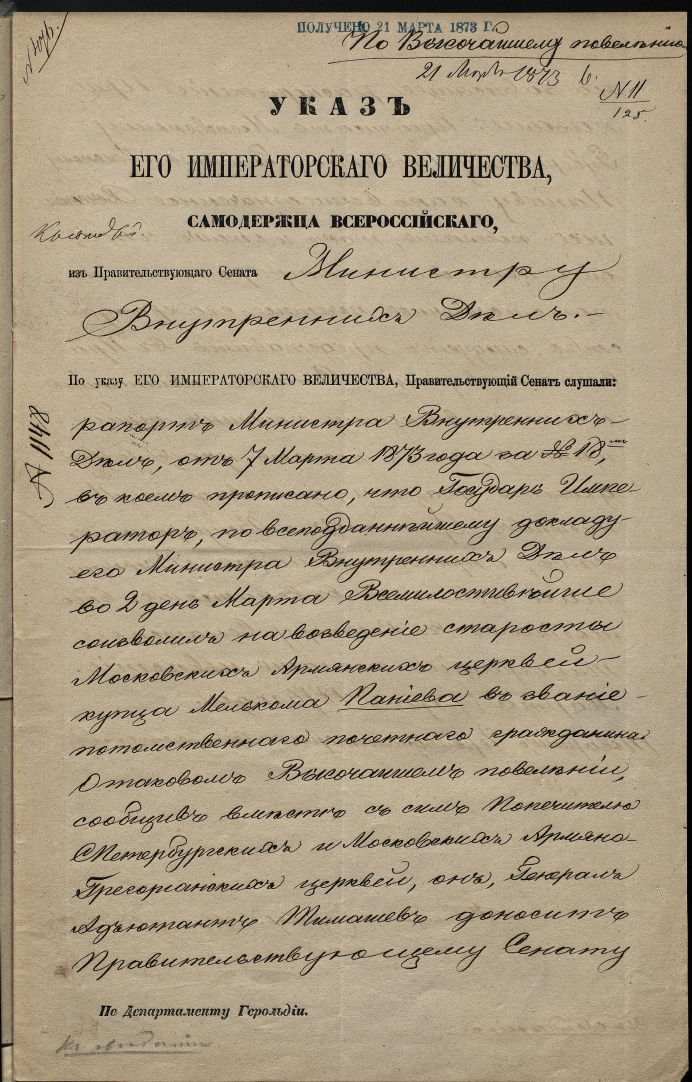 ПОЛУЧЕНО 21 МАРТА 1873 Г.
По Высочайшему повелѣнію
21 Марта 1873
№ 11
125.
УКАЗЪ
ЕГО ИМПЕРАТОРСКАГО ВЕЛИЧЕСТВА,
САМОДЕРЖЦА ВСЕРОССІЙСКАГО,
изъ Правительствующаго Сената Министру
Внутреннихъ Дѣлъ.
По указу ЕГО ИМПЕРАТОРСКАГО ВЕЛИЧЕСТВА, Правительствующій Сенатъ слушали:
№ 1148
рапортъ Министра Внутреннихъ
Дѣлъ, отъ 7 Марта 1873 года за № 18,
въ коемъ прописано, что Государь Импе
раторъ, по всеподданнѣйшему докладу
его Министра Внутреннихъ Дѣлъ
во 2 день Марта Всемилостивѣйше
соизволилъ на возведеніе старосты
Московскихъ Армянскихъ церквей
купца Мелькома Паніева въ званіе
потомственнаго почетнаго гражданина.
О таковомъ Высочайшемъ повелѣніи,
сообщивъ вмѣстѣ съ симъ Попечителю
СПетербургскихъ и Московскихъ Армяно-
Грегоріанскихъ церквей, онъ, Генералъ
Адъютантъ Тимашевъ доноситъ
Правительствующему Сенату
По Департаменту Герольдіи.